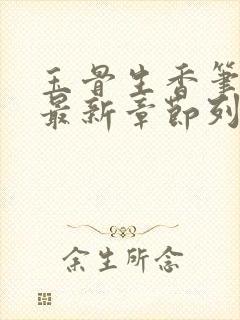 玉骨生香笔
最新章节列
余生所念